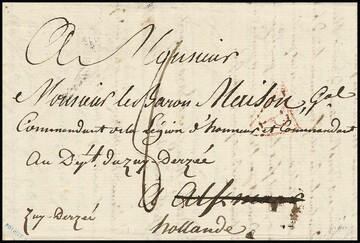 A Monsieur
Monsieur le Baron Maison, Gal
Commandant de la Légion d'honneur et Commandant
Au Dépt. du Zuy-Derzeé
A Alkmaar
Zuy-Derzeé
hollande